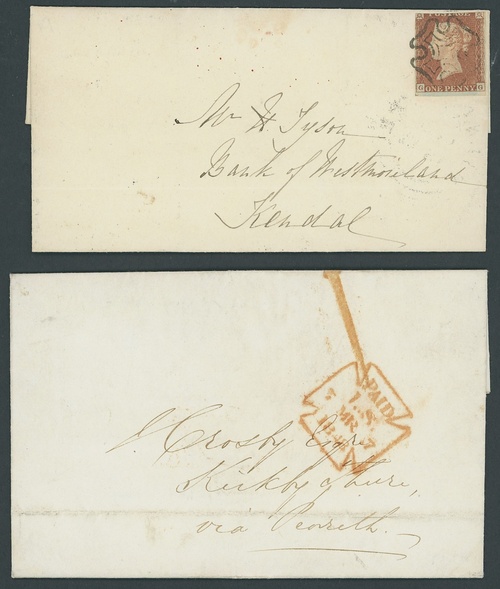 POSTAGE
ONE PENNY
Mr H Tyson
Bank of Westmoreland
Kendal
PAID
L.S.
7 MR 7
J Crosby Esqre
Kirkby Thure,
via Penrith.